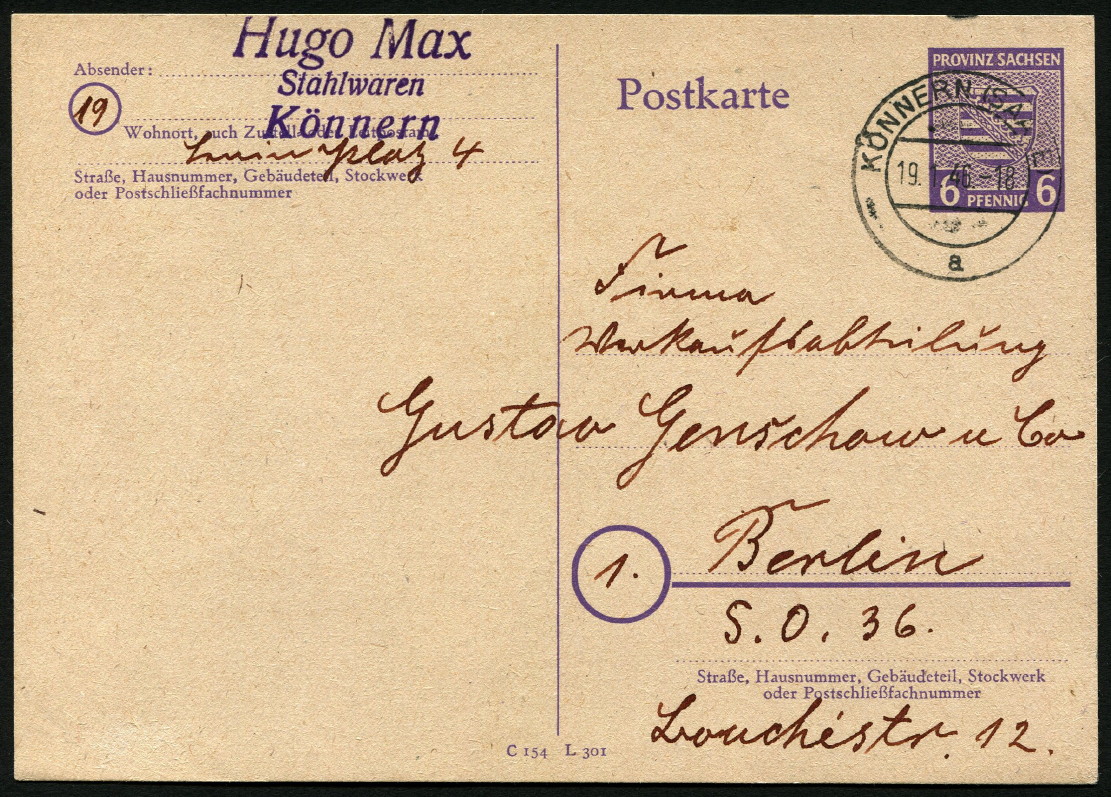 Hugo Max
Stahlwaren
Könnern
Absender:
19
Wohnort, auch Zustell- oder Leitpostamt
platz 4
Straße, Hausnummer, Gebäudeteil, Stockwerk
oder Postschließfachnummer
Postkarte
PROVINZ SACHSEN
6 PFENNIG 6
KÖNNERN (SAALE)
19.1.46.-18
a
Firma
Verkaufsabteilung
Gustav Genschow u Co
1. Berlin
S.O. 36.
Straße, Hausnummer, Gebäudeteil, Stockwerk
oder Postschließfachnummer
Bouchéstr. 12.
C 154 L 301